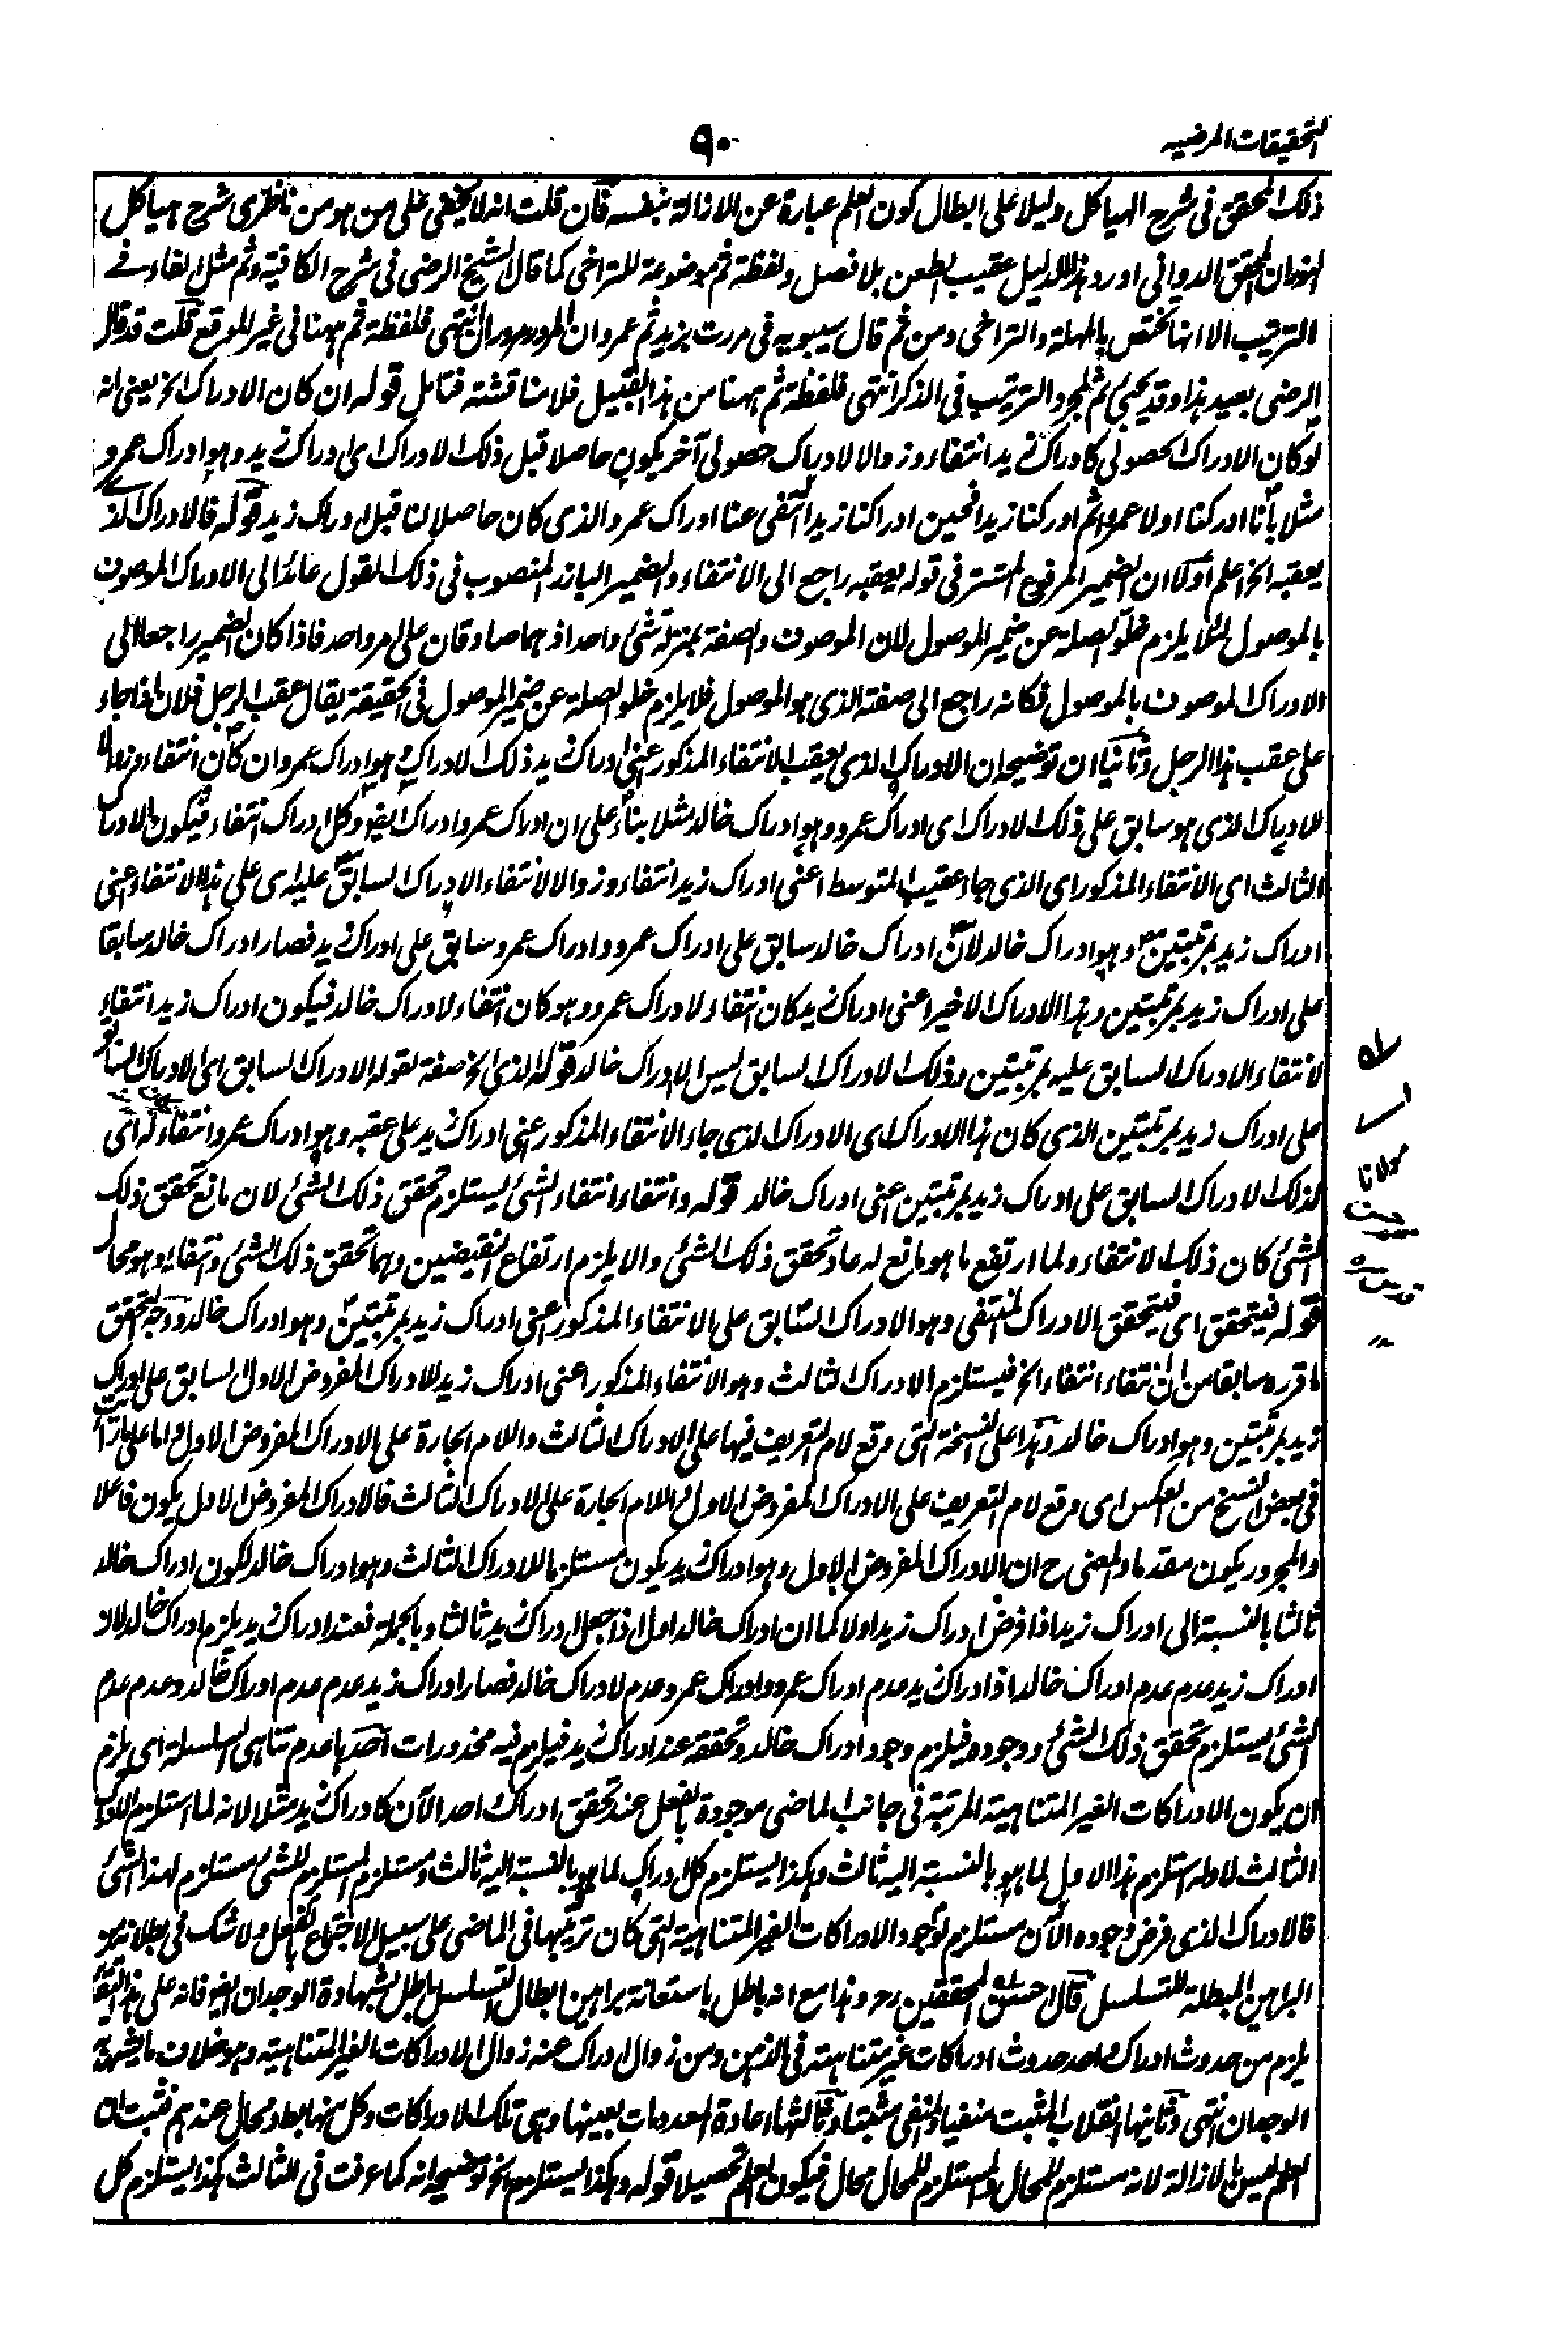 التحقيقات المرضيه
٩٠
ذلك المحقق فى شرح الهياكل دليلا على ابطال كون العلم عبارة عن الازالة بنفسه فان قلت انه لا يخفى على من هو من ناظرى شرح هياكل
النور ان المحقق الدوانى اورد هذا الدليل عقيب الطعن بلا فصل ولفظة ثم موضوعة للتراخى كما قال الشيخ الرضى فى شرح الكافية وثم مثل الفاء فے
الترتيب الا انها تختص بالمهلة والتراخى ومن ثم قال سيبويه فى مررت بزيد ثم عمرو ان المرور مروران انتهى فلفظة ثم ههنا فى غير الموقع قلت قد قال
الرضى بعيد هذا وقد يجئ ثم لمجرد الترتيب فى الذكر انتهى فلفظة ثم ههنا من هذا القبيل فلا مناقشة فتامل قوله ان كان الادراك الخ يعنى انه
لو كان الادراك الحصولى كادراك زيد انتفاء وزوالا لادراك حصولى آخر يكون حاصلا قبل ذلك الادراك اى ادراك زيد وهو ادراك عمرو
مثلا بانا ادركنا اولا عمروا ثم ادركنا زيدا فحين ادراكنا زيدا انتفى عنا ادراك عمرو الذى كان حاصلا لنا قبل ادراك زيد قوله فالادراك الذے
يعقبه الخ اعلم اولا ان الضمير المرفوع المستتر فى قوله يعقبه راجع الى الانتفاء والضمير البارز المنصوب فى ذلك القول عائد الى الادراك الموصوف
بالموصول لئلا يلزم خلو الصلة عن ضمير الموصول لان الموصوف والصفة بمنزلة شئ واحد اذ هما صادقان على امر واحد فاذا كان الضمير راجعا الى
الادراك الموصوف بالموصول فكانه راجع الى صفته الذى هو الموصول فلا يلزم خلو الصلة عن ضمير الموصول فى الحقيقة يقال عقب الرجل فلان اذا جاء
على عقب هذا الرجل وثانيا ان توضيحه ان الادراك الذى يعقب الانتفاء المذكور اعنى ادراك زيد ذلك الادراك وهو ادراك عمرو ان كان انتفاء وزوالا
للادراك الذى هو سابق على ذلك الادراك اى ادراك عمرو وهو ادراك خالد مثلا بناء على ان ادراك عمرو ادراك ايضا وكل ادراك انتفاء فيكون الادراك
الثالث اى الانتفاء المذكور اى الذى جاء عقيب المتوسط اعنى ادراك زيد انتفاء وزوالا لانتفاء الادراك السابق عليه اى على هذا الانتفاء اعنى
ادراك زيد بمرتبتين وهو ادراك خالد لان ادراك خالد سابق على ادراك عمرو وادراك عمرو سابق على ادراك زيد فصار ادراك خالد سابقا
على ادراك زيد بمرتبتين وهذا الادراك الاخير اعنى ادراك زيد كان انتفاء لادراك عمرو وهو كان انتفاء لادراك خالد فيكون ادراك زيد انتفاء
لانتفاء الادراك السابق عليه بمرتبتين وذلك الادراك السابق ليس الا ادراك خالد قوله الذى الخ صفة لقوله الادراك السابق اى الادراك السابق
على ادراك زيد بمرتبتين الذى كان هذا الادراك اى الادراك الذى جاء الانتفاء المذكور اعنى ادراك زيد على عقبه وهو ادراك عمرو انتفاء له اى
لذلك الادراك السابق على ادراك زيد بمرتبتين اعنى ادراك خالد قوله وانتفاء انتفاء الشئ يستلزم تحقق ذلك الشئ لان مانع تحقق ذلك
الشئ كان ذلك الانتفاء ولما ارتفع ما هو مانع له عاد تحقق ذلك الشئ والا يلزم ارتفاع النقيضين وهما تحقق ذلك الشئ وانتفائه وهو محال
قوله فيتحقق اى فيتحقق الادراك المنتفى وهو الادراك السابق على الانتفاء المذكور اعنى ادراك زيد بمرتبتين وهو ادراك خالد ووجه التحقق
ما قرره سابقا من ان انتفاء انتفاء الخ فيستلزم الادراك الثالث وهو الانتفاء المذكور اعنى ادراك زيد للادراك المفروض الاول السابق على ادراك
زيد بمرتبتين وهو ادراك خالد وهذا على النسخة التى وقع لام التعريف فيها على الادراك الثالث واللام الجارة على الادراك المفروض الاول واما على ما
فى بعض النسخ من العكس اى وقع لام التعريف على الادراك المفروض الاول واللام الجارة على الادراك الثالث فالادراك المفروض الاول يكون فاعلا
والمجرور يكون مقدما والمعنى ح ان الادراك المفروض الاول وهو ادراك زيد يكون مستلزما للادراك الثالث وهو ادراك خالد لكون ادراك خالد
ثالثا بالنسبة الى ادراك زيد اذا فرض ادراك زيد اولا كما ان ادراك خالد اول اذا جعل ادراك زيد ثالثا وبالجملة فعند ادراك زيد يلزم ادراك خالد لان
ادراك زيد عدم عدم ادراك خالد اذ ادراك زيد عدم ادراك عمرو وادراك عمرو عدم لادراك خالد فصار ادراك زيد عدم عدم ادراك خالد وعدم عدم
الشئ يستلزم تحقق ذلك الشئ ووجوده فيلزم وجود ادراك خالد وتحققه عند ادراك زيد فيلزم فيه محذورات احدها عدم تناهى السلسلة اى يلزم
ان يكون الادراكات الغير المتناهية المرتبة فى جانب الماضى موجودة بالفعل عند تحقق ادراك احد الآن كادراك زيد مثلا لانه لما استلزم الادراك
الثالث لاوله استلزم هذا الاول لما هو بالنسبة اليه ثالث وهكذا يستلزم كل ادراك لما هو بالنسبة اليه ثالث ومستلزم المستلزم للشئ مستلزم لهذا الشئ
فالادراك الذى فرض وجوده الآن مستلزم لوجود الادراكات الغير المتناهية التى كان ترتبها فى الماضى على سبيل الاجتماع بالفعل ولا شك فى بطلانه
البراهين المبطلة للتسلسل قال المحققين رح وهذا مع انه باطل باستعانة براهين ابطال التسلسل باطل بشهادة الوجدان ايضا فانه على هذا التقدير
يلزم من حدوث ادراك واحد حدوث ادراكات غير متناهية فى الذهن ومن زوال ادراك عنه زوال الادراكات الغير المتناهية وهو خلاف ما يشهد به
الوجدان انتهى وثانيها انقلاب المثبت منفيا والمنفى مثبتا وثالثها اعادة المعدومات بعينها وهى تلك الادراكات وكل منها باطل ومحال عندهم فثبت ان
العلم ليس بالازالة لانه مستلزم للمحال والمستلزم للمحال محال فيكون العلم تحصيلا قوله وهكذا يستلزم الخ توضيحه انه كما عرفت فى الثالث هكذا يستلزم كل
مولانا